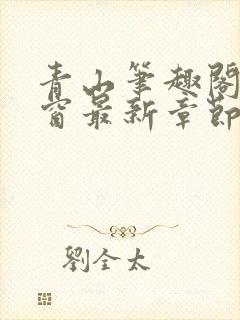 青山筆趣閣
窗最新章節
劉全太